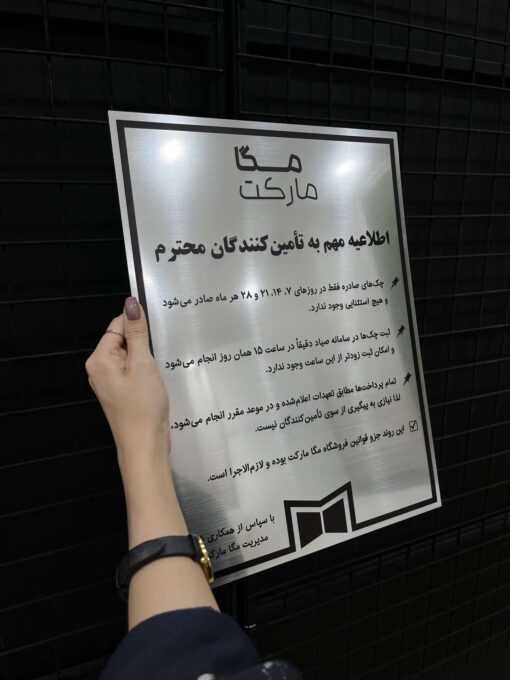 مگا
مارکت
اطلاعیه مهم به تأمین‌کنندگان محترم
چک‌های صادره فقط در روزهای ۷، ۱۴، ۲۱ و ۲۸ هر ماه صادر می‌شود
و هیچ استثنایی وجود ندارد.
ثبت چک‌ها در سامانه صیاد دقیقاً در ساعت ۱۵ همان روز انجام می‌شود
و امکان ثبت زودتر از این ساعت وجود ندارد.
تمام پرداخت‌ها مطابق تعهدات اعلام‌شده و در موعد مقرر انجام می‌شود،
لذا نیازی به پیگیری از سوی تأمین‌کنندگان نیست.
این روند جزو قوانین فروشگاه مگا مارکت بوده و لازم‌الاجرا است.
با سپاس از همکاری
مدیریت مگا مارکت